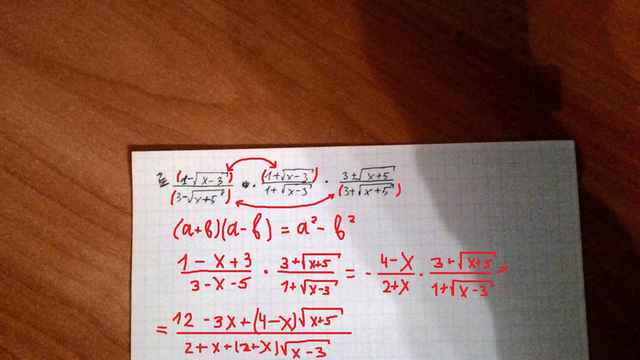 = (1-√(x-3))/(3-√(x+5)) · (1+√(x-3))/(1+√(x-3)) · (3+√(x+5))/(3+√(x+5))
(a+b)(a-b) = a² - b²
(1-x+3)/(3-x-5) · (3+√(x+5))/(1+√(x-3)) = -(4-x)/(2+x) · (3+√(x+5))/(1+√(x-3)) =
= (12-3x+(4-x)√(x+5))/(2+x+(2+x)√(x-3))